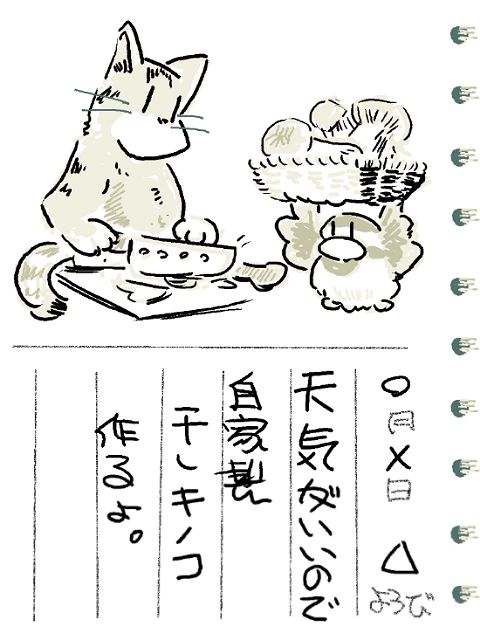 ○月×日 △よろび
天気がいいので
自家製
干しキノコ
作るよ。